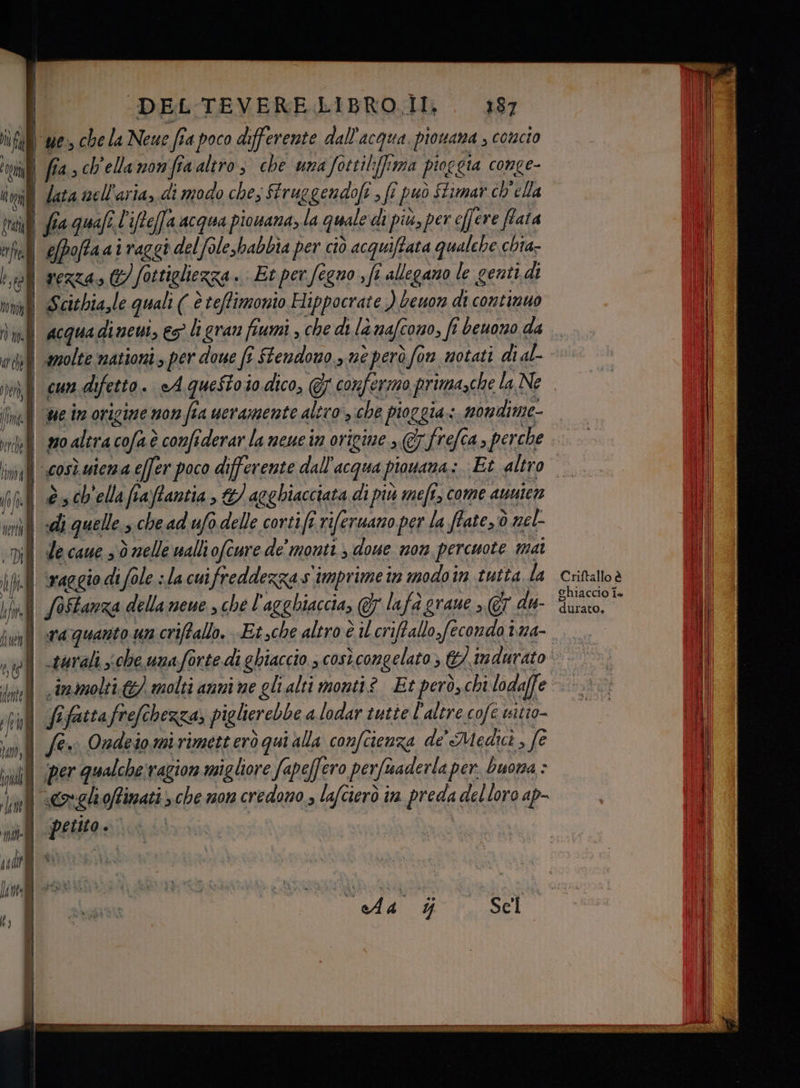 DEL TEVERE LIBRO II. 187
ue, che la Neue ſia poco differente dall'acqua piouana, concio
ſia, ch'ella non ſia altro, che una ſottiliſſima pioggia conge-
lata nell'aria, di modo che, ſtruggendoſi, ſi può ſtimar ch'ella
ſia quaſi l'iſteſſa acqua piouana, la quale di più, per eſſere ſtata
eſpoſta a i raggi del ſole, habbia per ciò acquiſtata qualche chia-
rezza, & ſottigliezza. Et per ſegno, ſi allegano le genti di
Scithia, le quali ( è teſtimonio Hippocrate ) beuon di continuo
acqua di neui, & li gran fiumi, che di là naſcono, ſi beuono da
molte nationi, per doue ſi ſtendono, nè però ſon notati di al-
cun difetto. A queſto io dico, & confermo prima, che la Ne
ue in origine non ſia ueramente altro, che pioggia: nondime-
no altra coſa è conſiderar la neue in origine, & freſca, perche
così uiene a eſſer poco differente dall'acqua piouana: Et altro
è, ch'ella ſia ſtantia, & agghiacciata di più meſi, come auuien
di quelle, che ad uſo delle corti ſi riſeruano per la ſtate, ò nel-
le caue, ò nelle ualli oſcure de' monti, doue non percuote mai
raggio di ſole: la cui freddezza s'imprime in modo in tutta la
ſoſtanza della neue, che l'agghiaccia, & la fà graue, & du-
ra quanto un criſtallo. Et, che altro è il criſtallo, ſecondo i na-
turali, che una ſorte di ghiaccio, così congelato, & indurato
in molti & molti anni ne gli alti monti? Et però, chi lodaſſe
ſi fatta freſchezza, piglierebbe a lodar tutte l'altre coſe uitio-
ſe. Onde io mi rimetterò qui alla conſcienza de' Medici, ſe
per qualche ragion migliore ſapeſſero perſuaderla per buona:
& gli oſtinati, che non credono, laſcierò in preda del loro ap-
petito.
Criſtallo è
ghiaccio ī-
durato.
Aa ij Sel